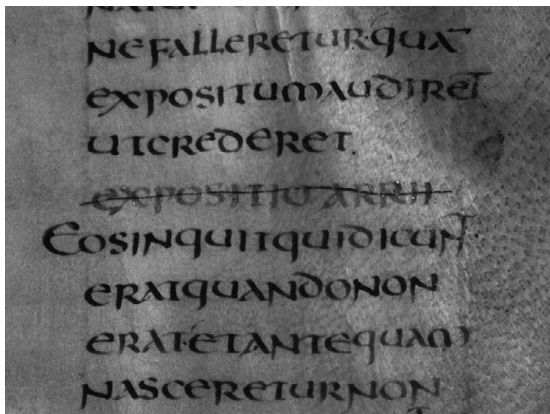 NEFALLERETUR·QUĀ
EXPOSITUMAUDIRET
UTCREDERET.
EXPOSITIO ARRII
EOSINQUITQUIDICUNT·
ERATQUANDONON
ERAT·ETANTEQUAM
NASCERETURNON